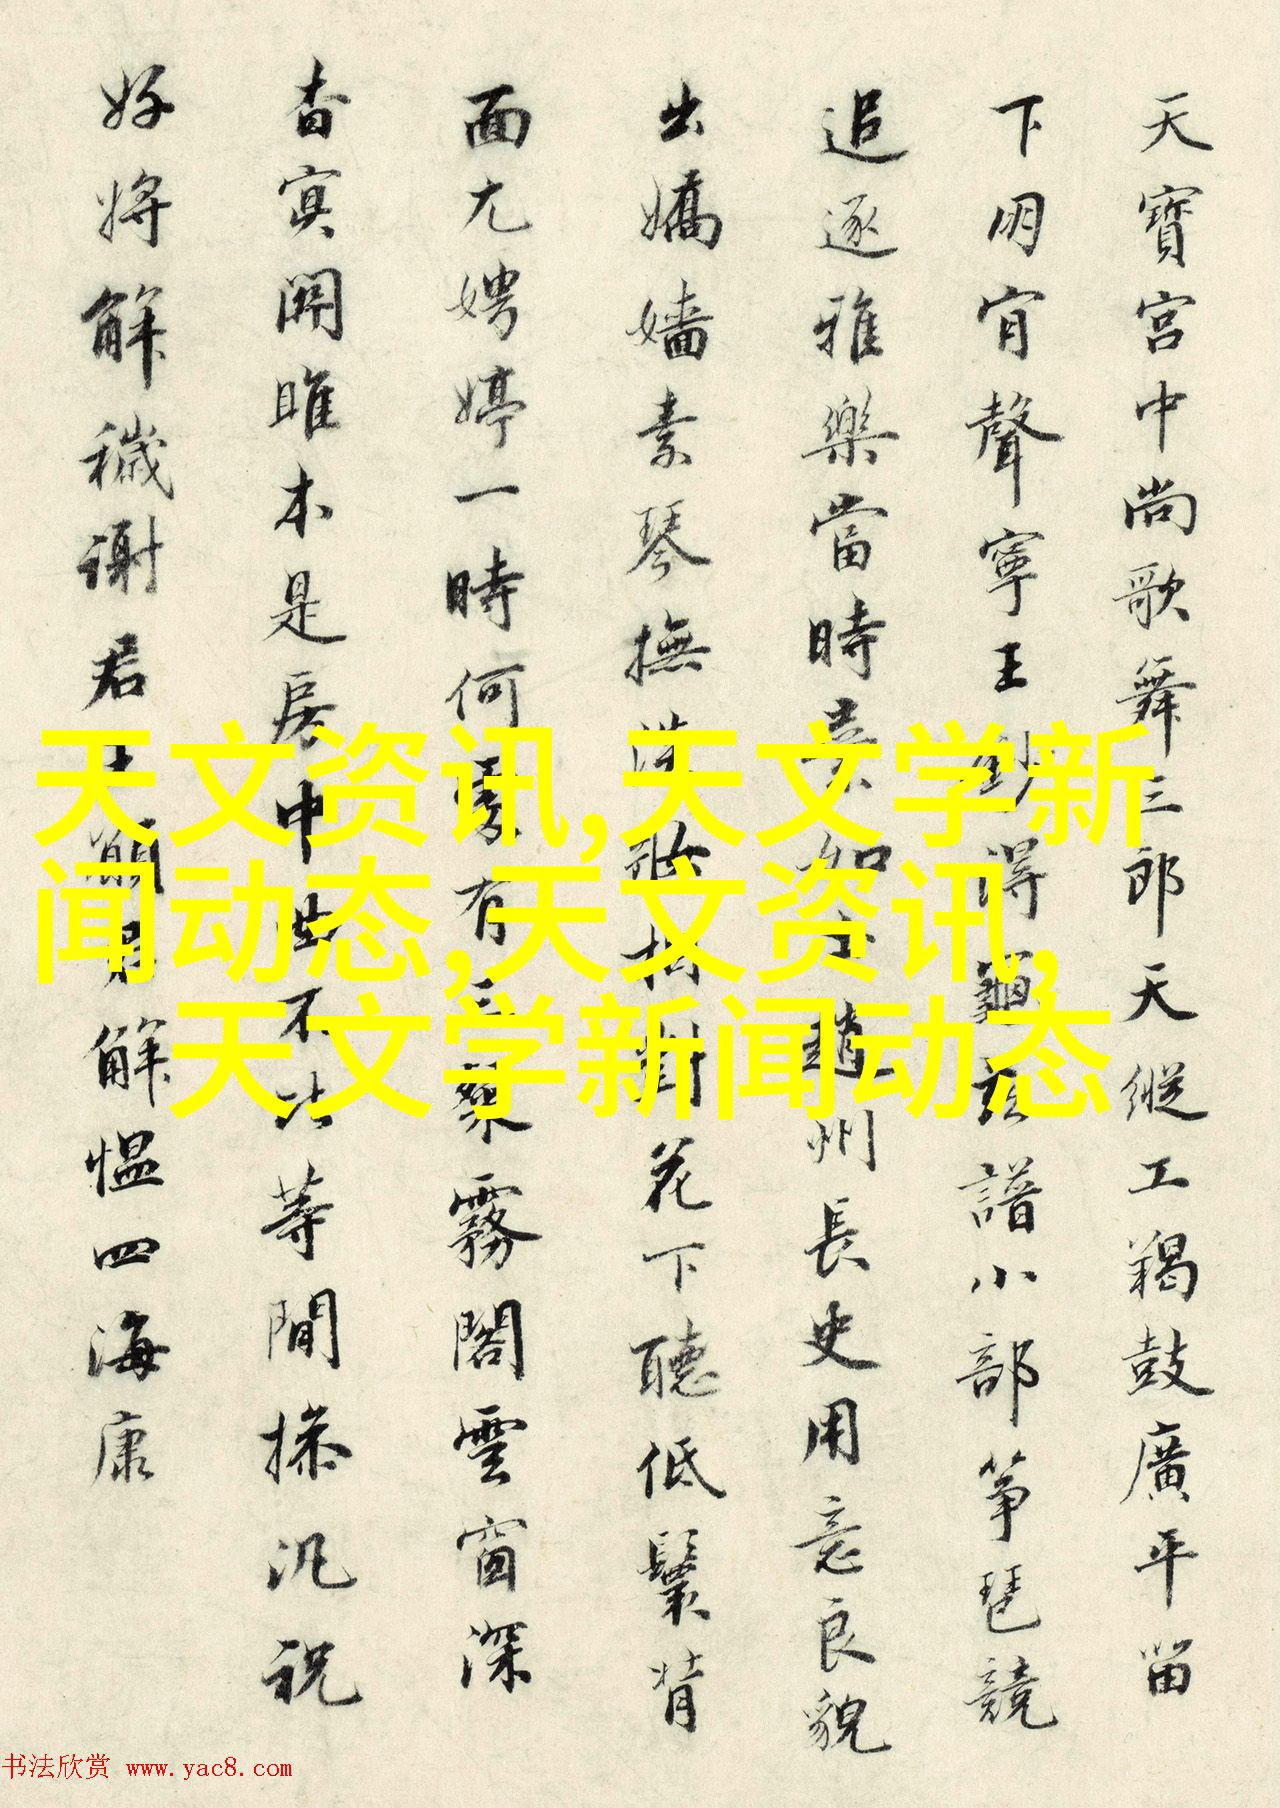 天寶宮中尚歌舞三郎天縱工羯鼓廣平留
下明宵聲寧王 得龜茲譜小部箏琶競
追逐雅樂當時 州長史用意良貌
出嬌嬙素琴撫 對花下聽低鬟背
面尤娉婷一時何 有 霧閣雲窗深
杳冥關雎本是房中 不 等閒操汎祝
好將解穢謝君 解愠四海康
天文资讯,天文学新
闻动态,天文资讯,
天文学新闻动态
书法欣赏 www.yac8.com